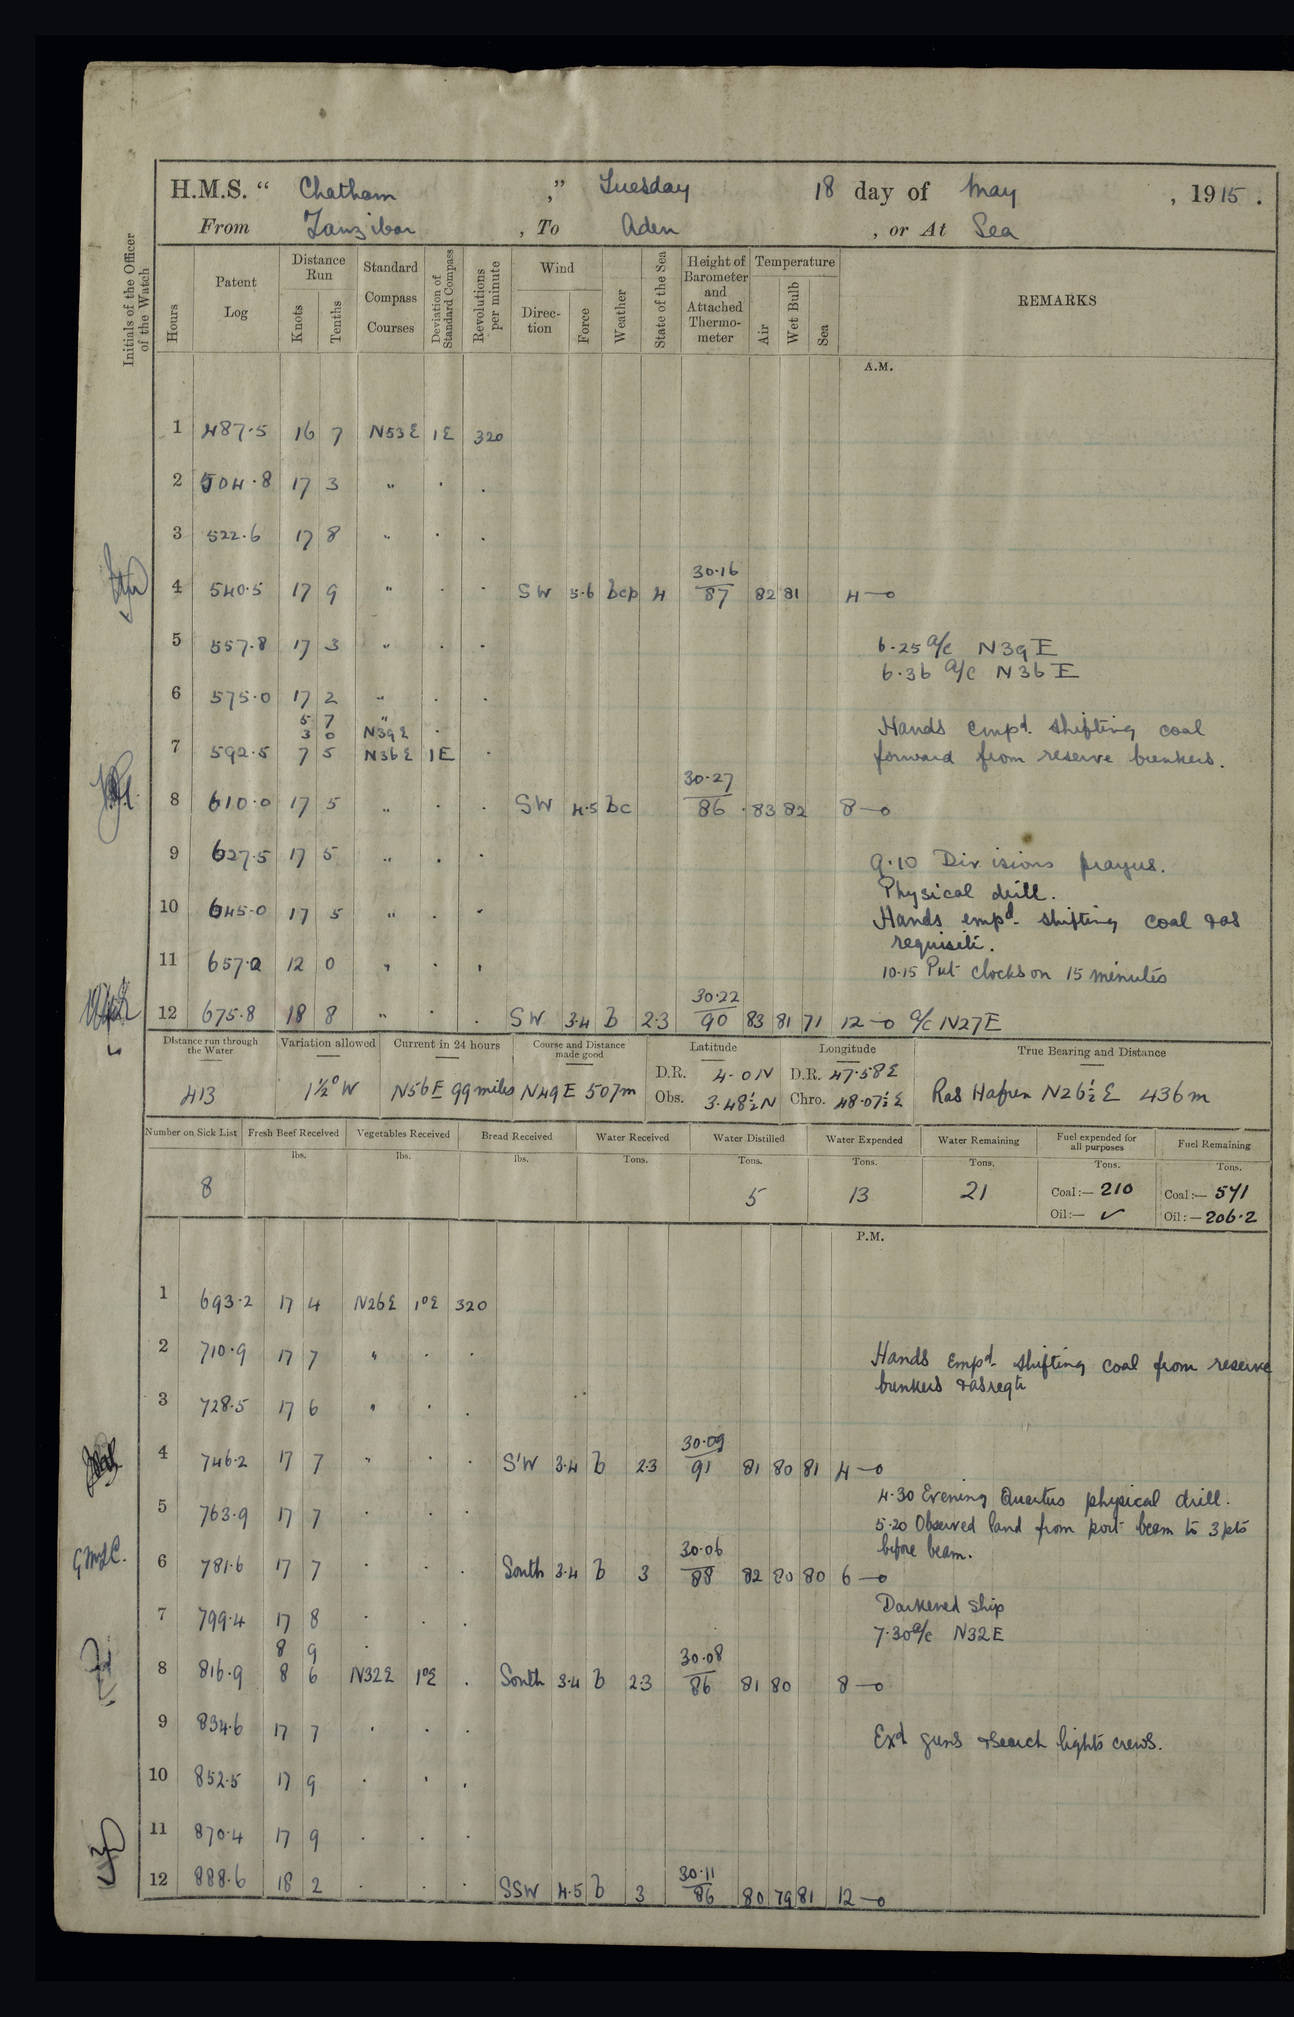 H.M.S. “ Chatham ,” Tuesday 18 day of May , 1915 .
From Zanzibar , To Aden , or At Sea
Initials of the Officer of the Watch
Hours
Patent Log
Distance Run
Knots
Tenths
Standard Compass Courses
Deviation of Standard Compass
Revolutions per minute
Wind
Direc- tion
Force
Weather
State of the Sea
Height of Barometer and Attached Thermo- meter
Temperature
Air
Wet Bulb
Sea
REMARKS
A.M.
1 487.5 16 7 N53E 1E 320
2 504.8 17 3 " . .
3 522.6 17 8 " . .
4 540.5 17 9 " . . SW 5.6 bcp 4 30.16 87 82 81 4—0
5 557.8 17 3 " . . 6.25 a/c N39E
6.36 a/c N36E
6 575.0 17 2 " . .
5 7 "
3 0 N39E .
7 592.5 7 5 N36E 1E .
Hands empd. shifting coal
forward from reserve bunkers.
8 610.0 17 5 " . . SW 4.5 bc 30.27 86 83 82 8—0
9 627.5 17 5 " . . 9.10 Divisions prayers.
Physical drill.
10 645.0 17 5 " . . Hands empd. shifting coal & as
requisite.
11 657.0 12 0 " . . 10.15 Put clocks on 15 minutes
12 675.8 18 8 " . . SW 3.4 b 2.3 30.22 90 83 81 71 12—0 a/c N27E
Distance run through the Water
413
Variation allowed
1½° W
Current in 24 hours
N56E 99 miles
Course and Distance made good
N49E 507m
Latitude
D.R. 4.0N
Obs. 3.48½N
Longitude
D.R. 47.58E
Chro. 48.07½E
True Bearing and Distance
Ras Hafun N26½E 436m
Number on Sick List
8
Fresh Beef Received
lbs.
Vegetables Received
lbs.
Bread Received
lbs.
Water Received
Tons.
Water Distilled
Tons.
5
Water Expended
Tons.
13
Water Remaining
Tons.
21
Fuel expended for all purposes
Tons.
Coal:— 210
Oil:— ✓
Fuel Remaining
Tons.
Coal:— 541
Oil:— 206.2
P.M.
1 693.2 17 4 N26E 1°E 320
2 710.9 17 7 " . . Hands Empd. shifting coal from reserve
bunkers & as reqte
3 728.5 17 6 " . .
4 746.2 17 7 " . . S'W 3.4 b 2.3 30.09 91 81 80 81 4—0
4.30 Evening Quarters physical drill.
5 763.9 17 7 . . . 5.20 Observed land from port beam to 3 pts
before beam.
6 781.6 17 7 . . . South 3.4 b 3 30.06 88 82 80 80 6—0
G.M.L.C.
Darkened Ship
7 799.4 17 8 . . . 7.30 a/c N32E
8 9 .
8 816.9 8 6 N32E 1°E . South 3.4 b 2.3 30.08 86 81 80 8—0
9 834.6 17 7 . . . Exd guns & search lights crews.
10 852.5 17 9 . . .
11 870.4 17 9 . . .
12 888.6 18 2 . . . SSW 4.5 b 3 30.11 86 80 79 81 12—0